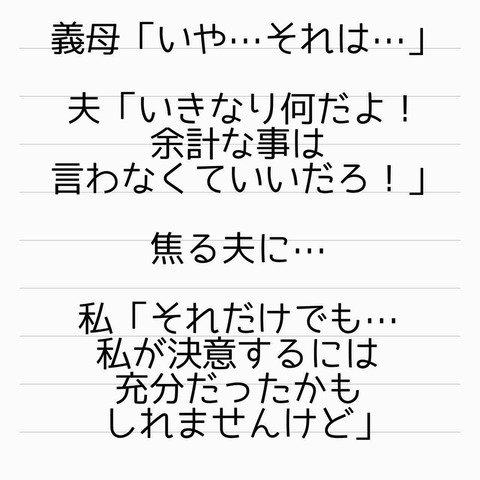 義母「いや…それは…」
夫「いきなり何だよ！
余計な事は
言わなくていいだろ！」
焦る夫に…
私「それだけでも…
私が決意するには
充分だったかも
しれませんけど」